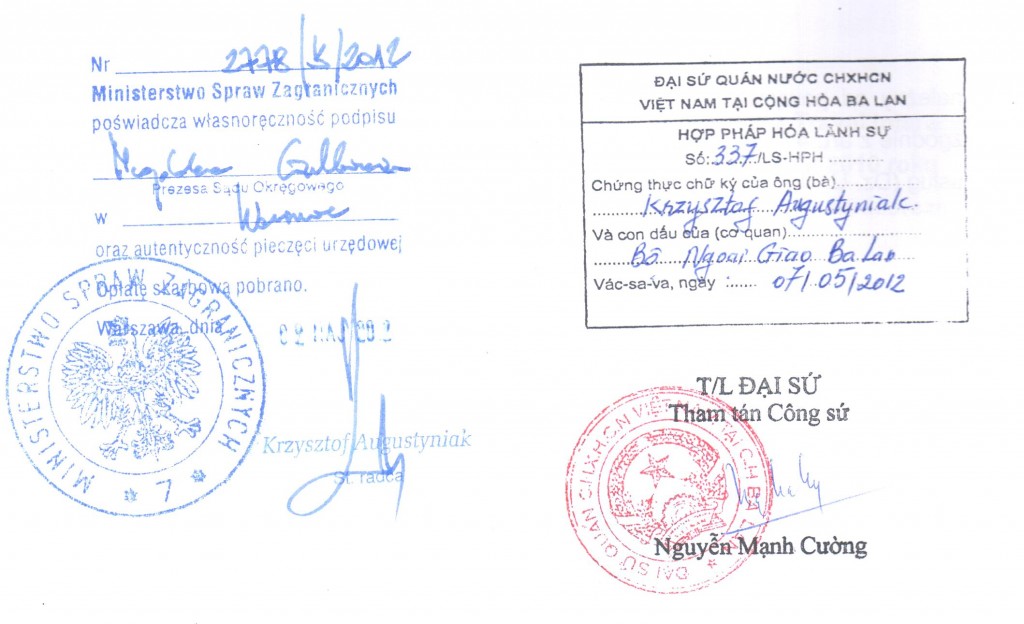 Nr 2778/K/2012
Ministerstwo Spraw Zagranicznych
poświadcza własnoręczność podpisu
Prezesa Sądu Okręgowego
w
oraz autentyczność pieczęci urzędowej
Opłatę skarbową pobrano.
Warszawa, dnia 02 MAJ 2012
MINISTERSTWO SPRAW ZAGRANICZNYCH
* 7 *
Krzysztof Augustyniak
St. radca
ĐẠI SỨ QUÁN NƯỚC CHXHCN
VIỆT NAM TẠI CỘNG HÒA BA LAN
HỢP PHÁP HÓA LÃNH SỰ
Số: 337/LS-HPH
Chứng thực chữ ký của ông (bà)
Krzysztof Augustyniak.
Và con dấu của (cơ quan)
Bô Ngoai Giao Ba Lan
Vác-sa-va, ngày : 07/05/2012
T/L ĐẠI SỨ
Tham tán Công sứ
ĐẠI SỨ QUÁN CHXHCN VIỆT NAM TẠI CH BA LAN
Nguyễn Mạnh Cường